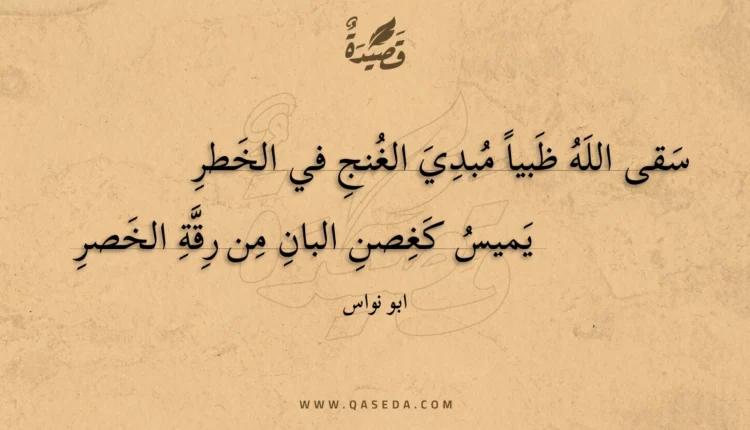 قَصِيدَةٌ
سَقى اللَهُ ظَبياً مُبدِيَ الغُنجِ في الخَطرِ
يَميسُ كَغِصنِ البانِ مِن رِقَّةِ الخَصرِ
ابو نواس
WWW.QASEDA.COM